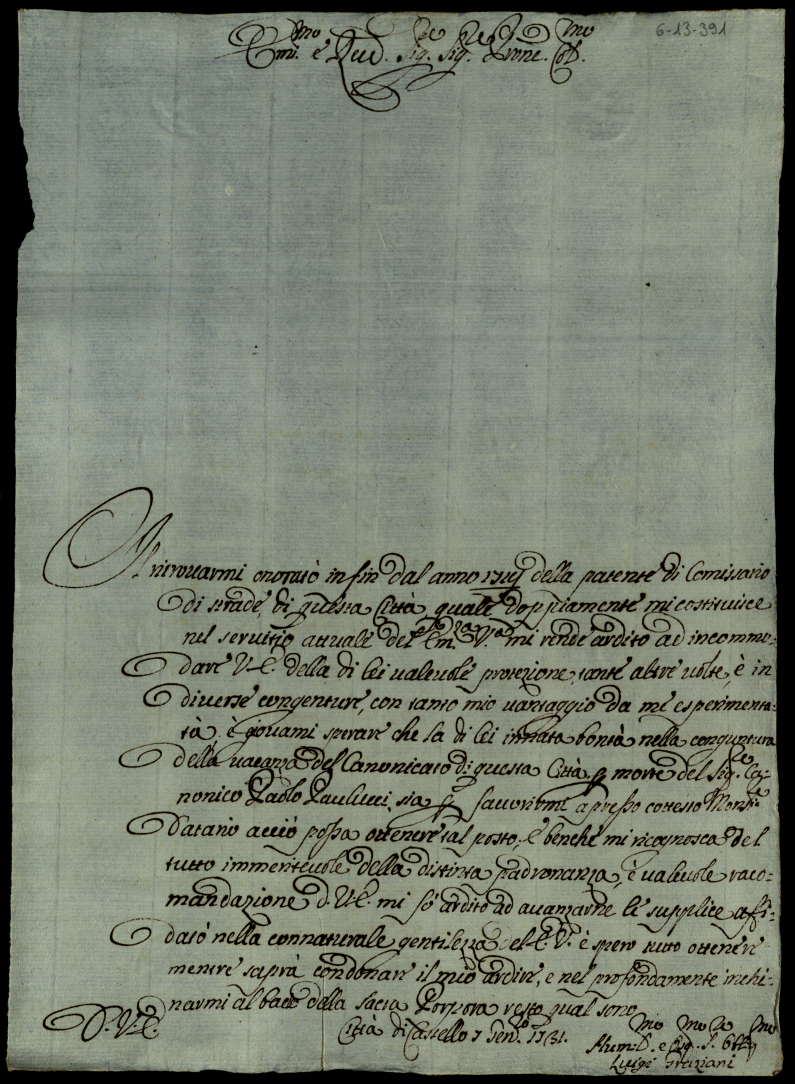 6-13-391
Em.mo e Rev.mo Sig. Sig. Prone Col.mo
Il ritrovarmi onorato in fin dal anno della patente di Comissario
di strade di questa Città, quale doppiamente mi costituisce
nel servitio attuale del Em.za V.a mi rende ardito ad incommo:
dare V. E. della di lei valevole protezione, tante altre volte, è in
diverse congenture, con tanto mio vantaggio da me esperimenta:
ta, è giovami sperare che la di lei innata bontà nella conguntura
della vacanza del Canonicato di questa Città p morte del Sig.re Ca:
nonico Paolo Paulucci, sia p favorirmi apresso cotesto Mons.re
Datario acciò possa ottenere tal posto, è benche mi ricognosca del
tutto immeritevole della distinta padronanza, è valevole raco:
mandazione d. V. E. mi fo ardito ad avanzarne le supplice affi:
dato nella connaturale gentilezza del E. V. è spero tutto ottenere
mentre saprà condonare il mio ardire, e nel profondamente inchi:
narmi al bacio della sacra Porpora resto qual sono
D. V. E.
Città di Castello 7 Gen.o 1731.
Hum.mo D.mo e Obb.mo
Luigi Graziani